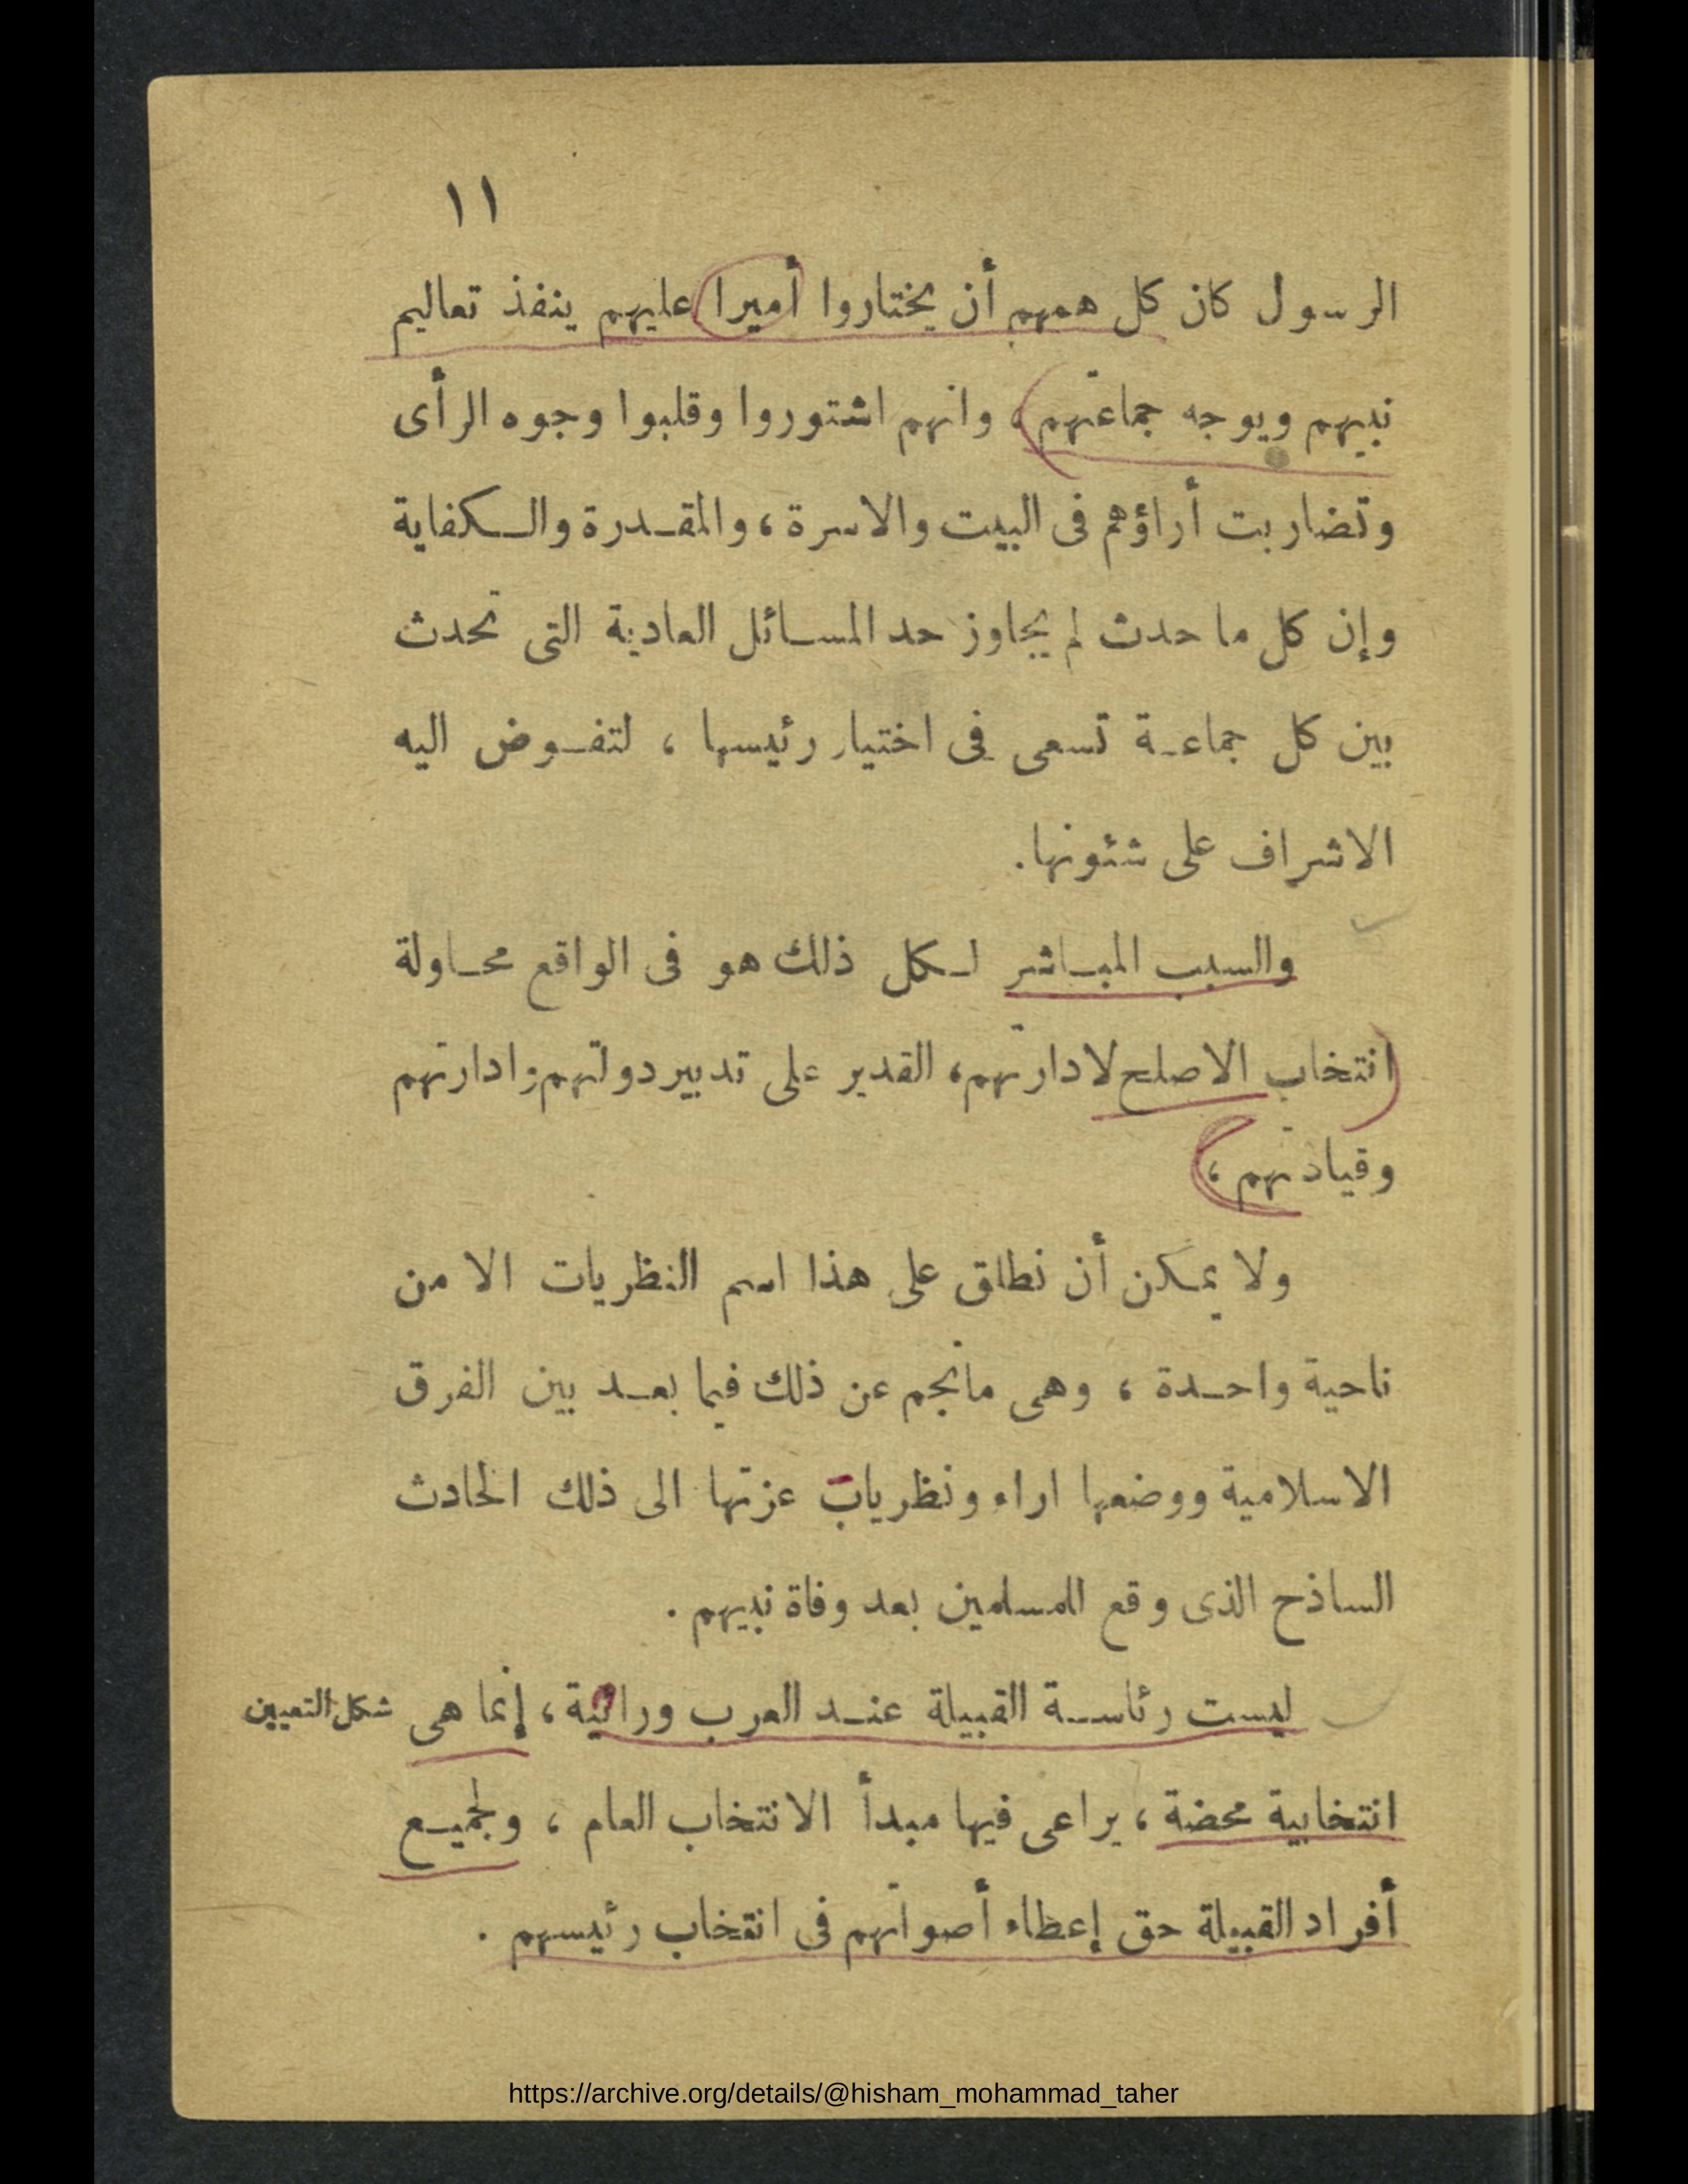 ١١
الرسول كان كل همهم أن يختاروا أميرا عليهم ينفذ تعاليم
نبيهم ويوجه جماعتهم، وانهم اشتوروا وقلبوا وجوه الرأى
وتضاربت أراؤهم فى البيت والاسرة، والمقدرة والكفاية
وإن كل ما حدث لم يجاوز حد المسائل العادية التى تحدث
بين كل جماعة تسعى فى اختيار رئيسها ، لتفوض اليه
الاشراف على شئونها.
والسبب المباشر لكل ذلك هو فى الواقع محاولة
انتخاب الاصلح لادارتهم، القدير على تدبير دولتهم وادارتهم
وقيادتهم ،
ولا يمكن أن نطلق على هذا اسم النظريات الا من
ناحية واحدة ، وهى مانجم عن ذلك فيما بعد بين الفرق
الاسلامية ووضعها اراء ونظريات عزتها الى ذلك الحادث
الساذح الذى وقع للمسلمين بعد وفاة نبيهم .
ليست رئاسة القبيلة عند العرب وراثية ، إنما هى
شكل التعيين
انتخابية محضة ، يراعى فيها مبدأ الانتخاب العام ، ولجميع
أفراد القبيلة حق إعطاء أصواتهم فى انتخاب رئيسهم .
https://archive.org/details/@hisham_mohammad_taher